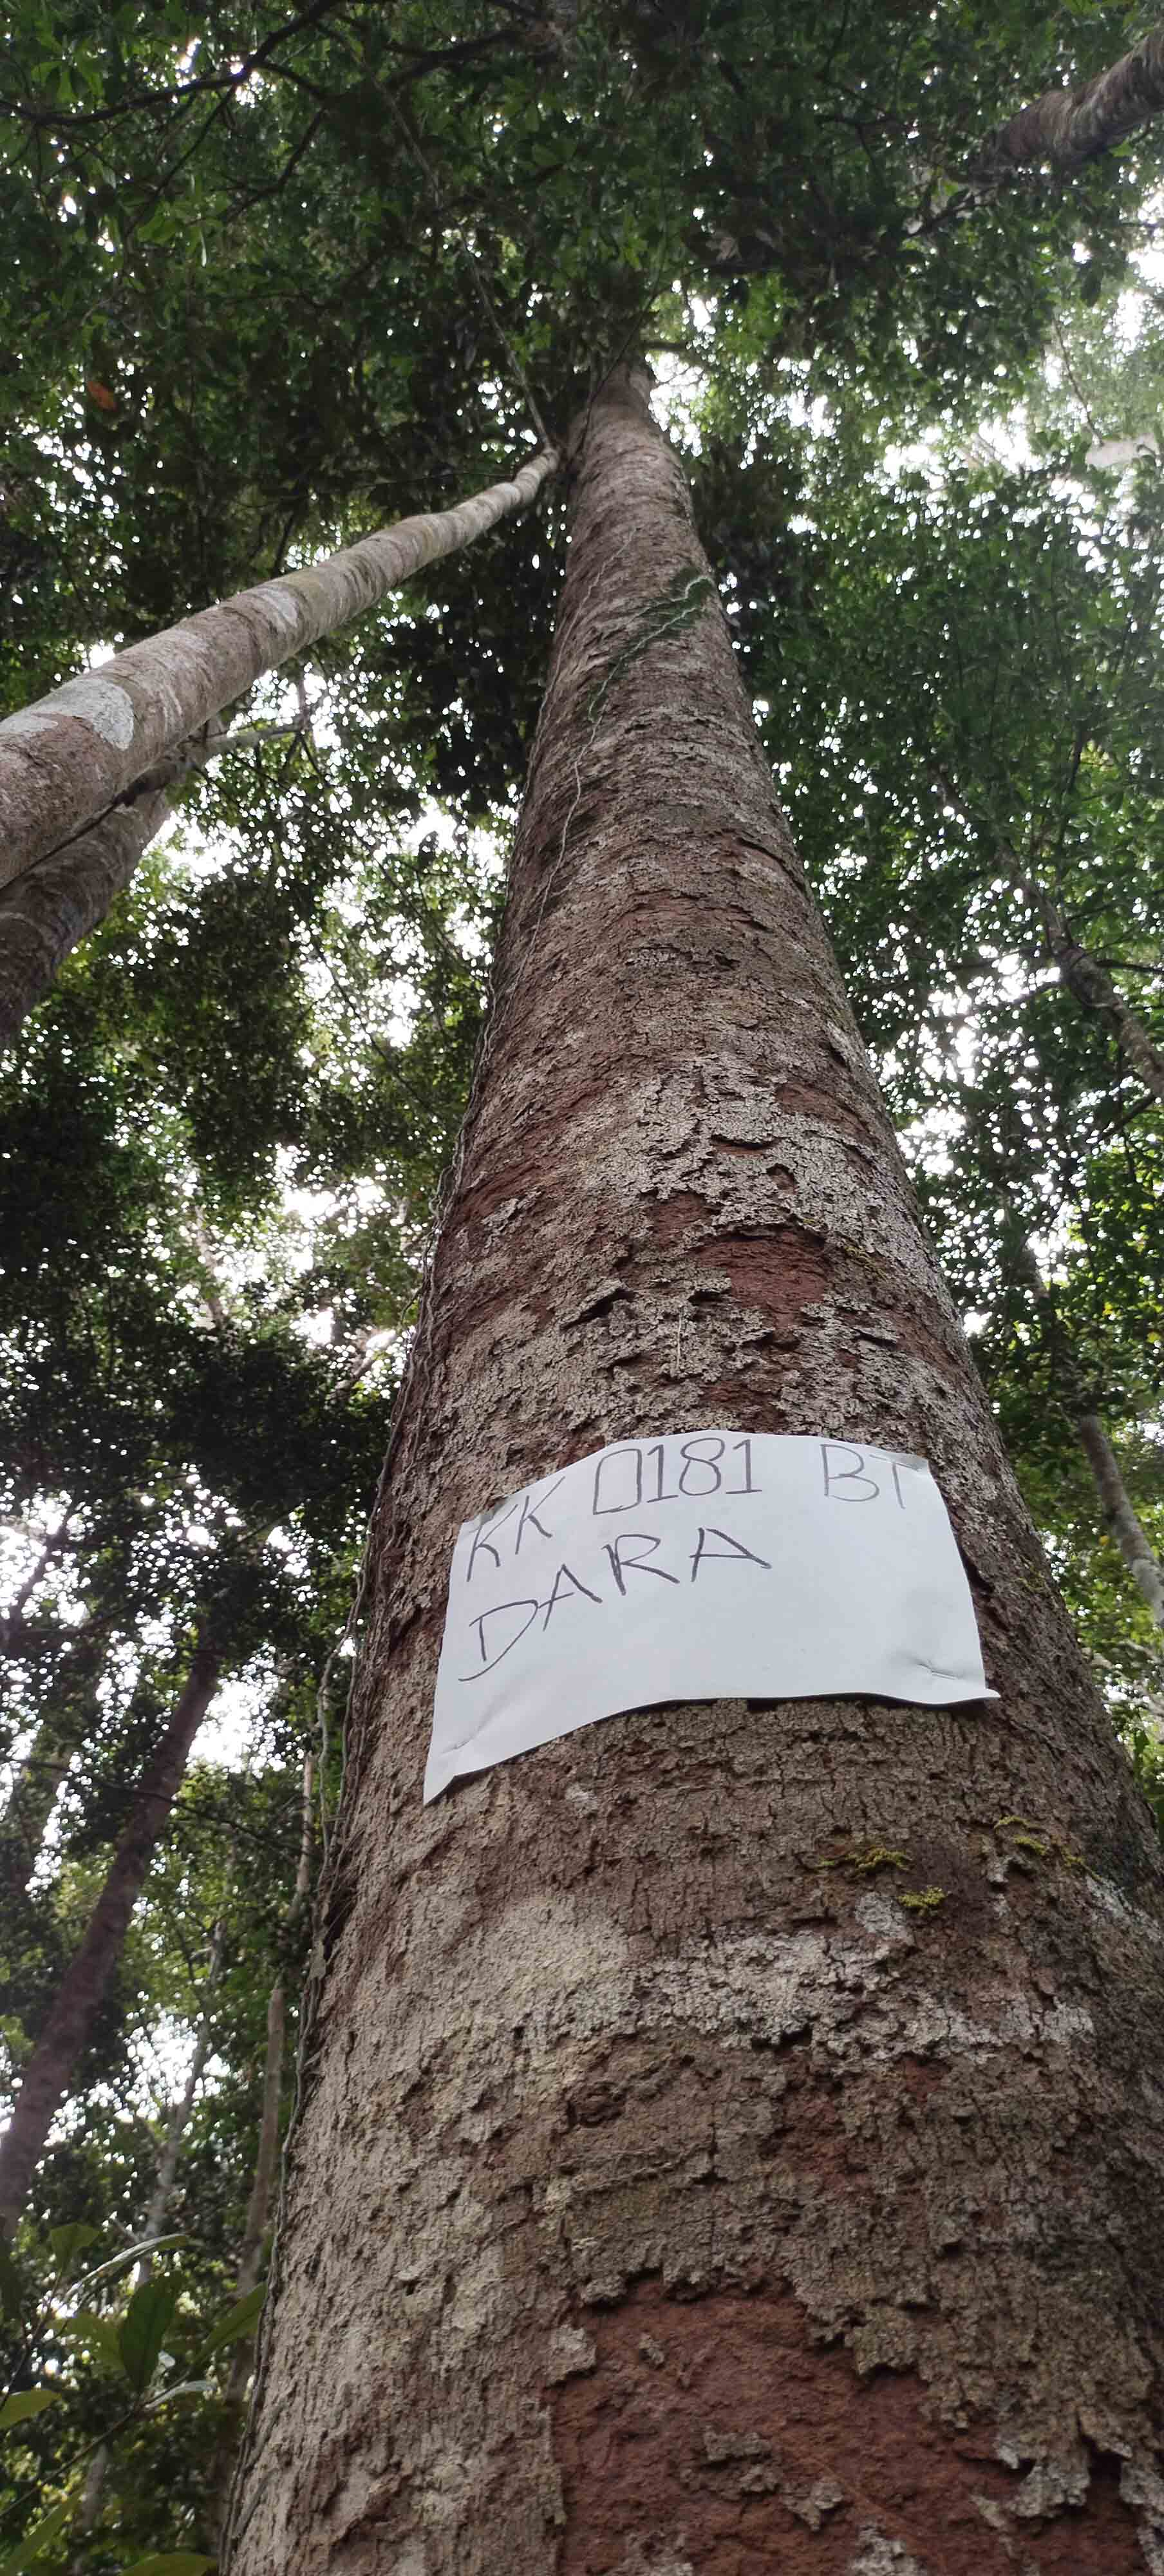 KK 0181 BT
DARA